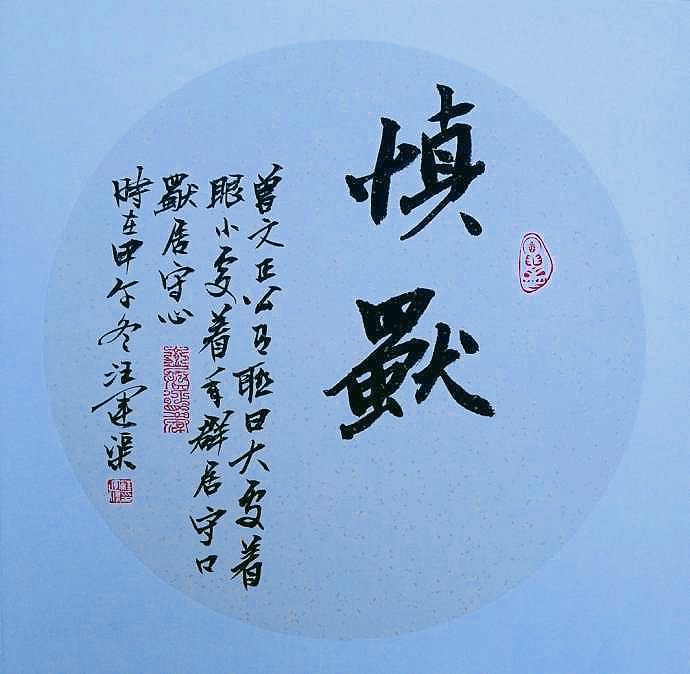 慎獨
曾文正公有聯曰大處着
眼小處着手群居守口
獨居守心
時在甲午冬汪運渠